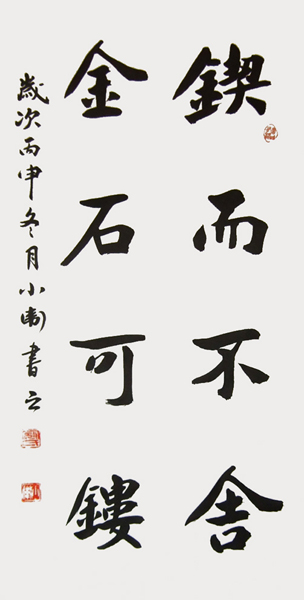 鍥而不舍
金石可鏤
歲次丙申冬月小衛書之